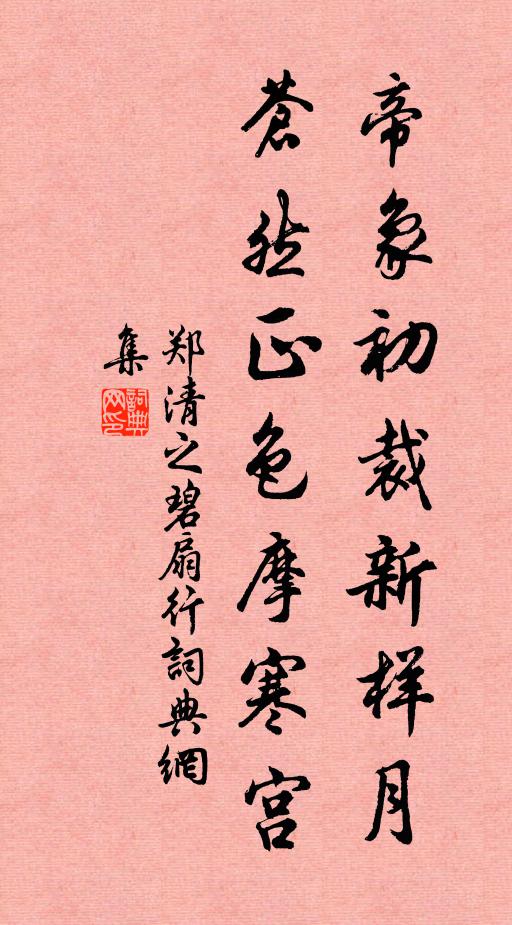 帝象初裁新样月
蒼然正色摩寒宫
郑清之碧扇行詞典網
集
詞典网印